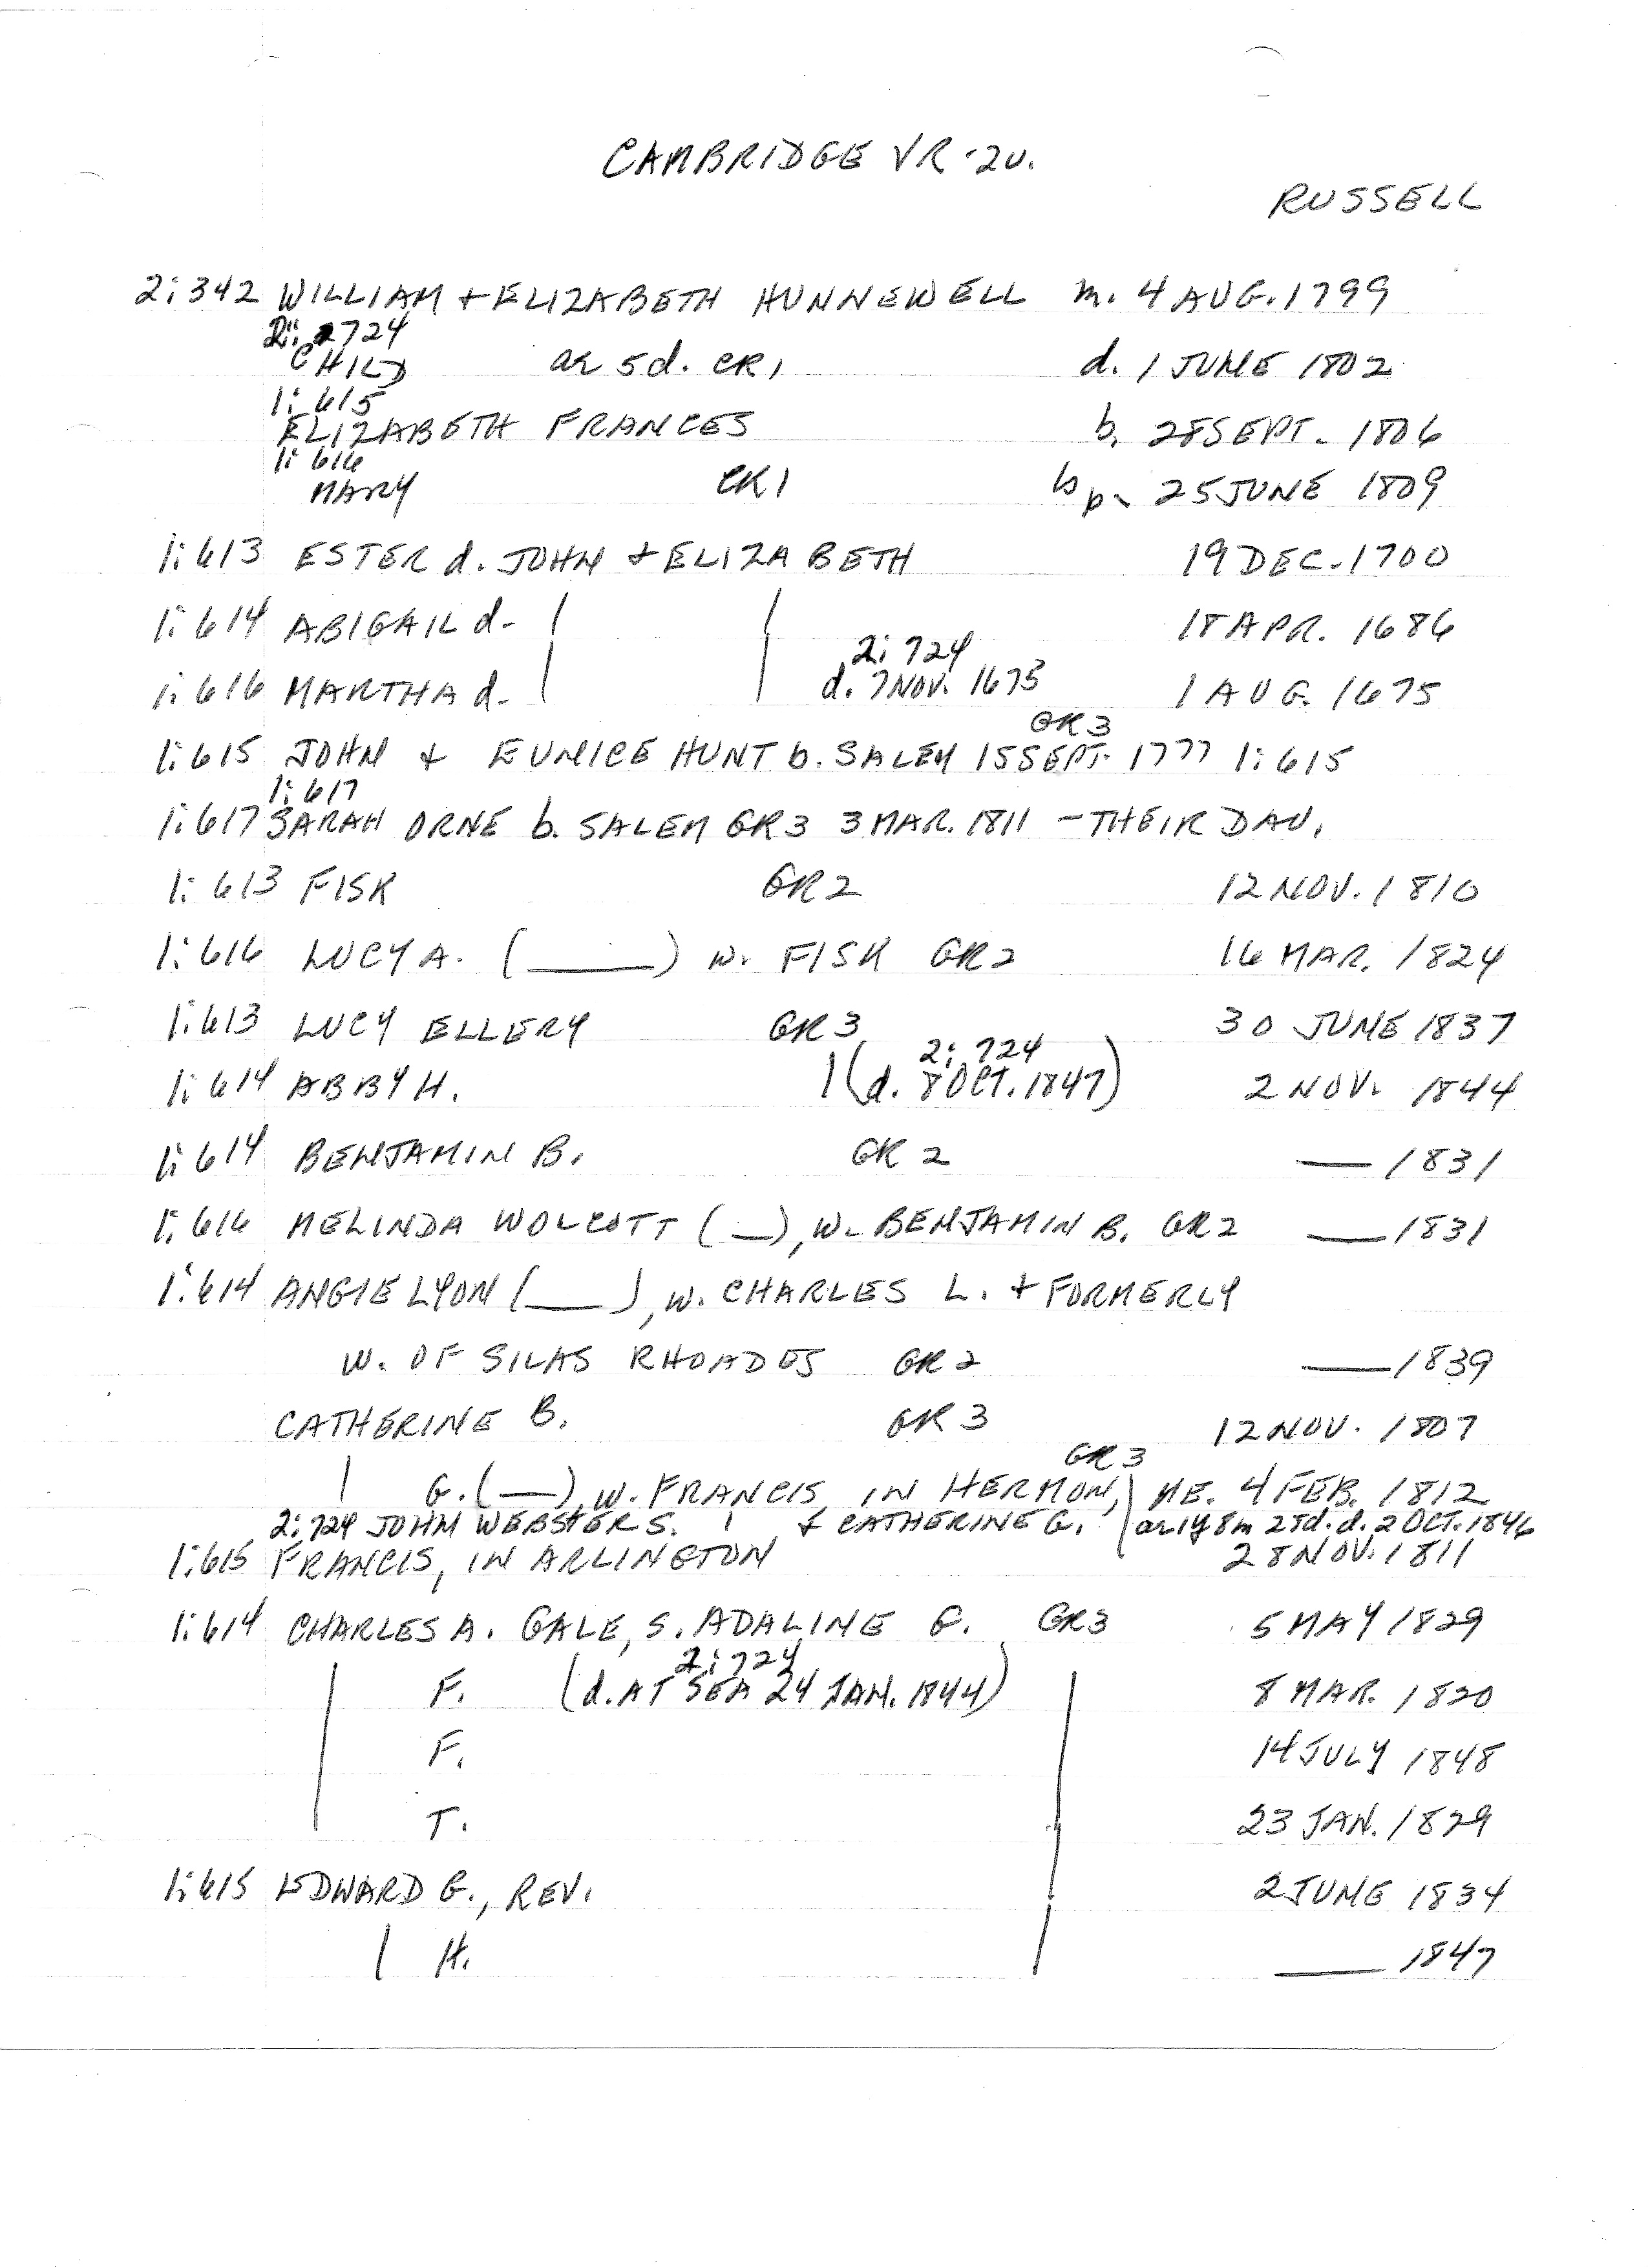 CAMBRIDGE VR-20.
RUSSELL
2:342 WILLIAM + ELIZABETH HUNNEWELL m. 4 AUG. 1799
2:724
CHILD ae 5d. CR1 d. 1 JUNE 1802
1:615
ELIZABETH FRANCES b. 28 SEPT. 1806
1:616
MARY CR1 bp. 25 JUNE 1809
1:613 ESTER d. JOHN + ELIZABETH 19 DEC. 1700
1:614 ABIGAIL d. | | 18 APR. 1686
2:724
1:616 MARTHA d. | | d. 7 NOV. 1675 1 AUG. 1675
GR3
1:615 JOHN + EUNICE HUNT b. SALEM 15 SEPT. 1777 1:615
1:617
1:617 SARAH ORNE b. SALEM GR3 3 MAR. 1811 - THEIR DAU.
1:613 FISK GR2 12 NOV. 1810
1:616 LUCY A. (___) w. FISK GR2 16 MAR. 1824
1:613 LUCY ELLERY GR3 30 JUNE 1837
2:724
1:614 ABBY H. | (d. 8 OCT. 1847) 2 NOV. 1844
1:614 BENJAMIN B. GR2 — 1831
1:616 MELINDA WOLCOTT (—), w. BENJAMIN B. GR2 — 1831
1:614 ANGIE LYON (___), w. CHARLES L. + FORMERLY
W. OF SILAS RHOADES GR2 — 1839
CATHERINE B. GR3 12 NOV. 1807
GR3
| G. (—), w. FRANCIS, IN HERMON, ME. 4 FEB. 1812
2:724 JOHN WEBSTER S. | + CATHERINE G. (ae 1y 8m 28d. d. 2 OCT. 1846
1:615 FRANCIS, IN ARLINGTON 28 NOV. 1811
1:614 CHARLES A. GALE, S. ADALINE G. GR3 5 MAY 1829
2:724
| F. (d. AT SEA 24 JAN. 1844) | 8 MAR. 1820
F. 14 JULY 1848
T. 23 JAN. 1829
1:615 EDWARD G., REV. 2 JUNE 1834
| H. — 1847